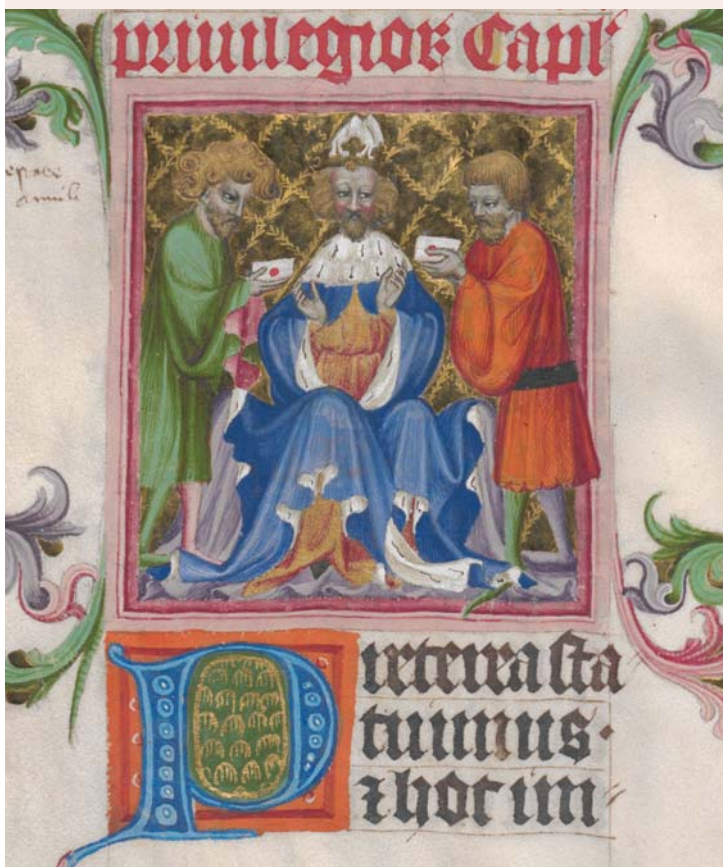 priuilegioꝝ Capl
Preterea ſta
tuimus·
⁊ hoc im